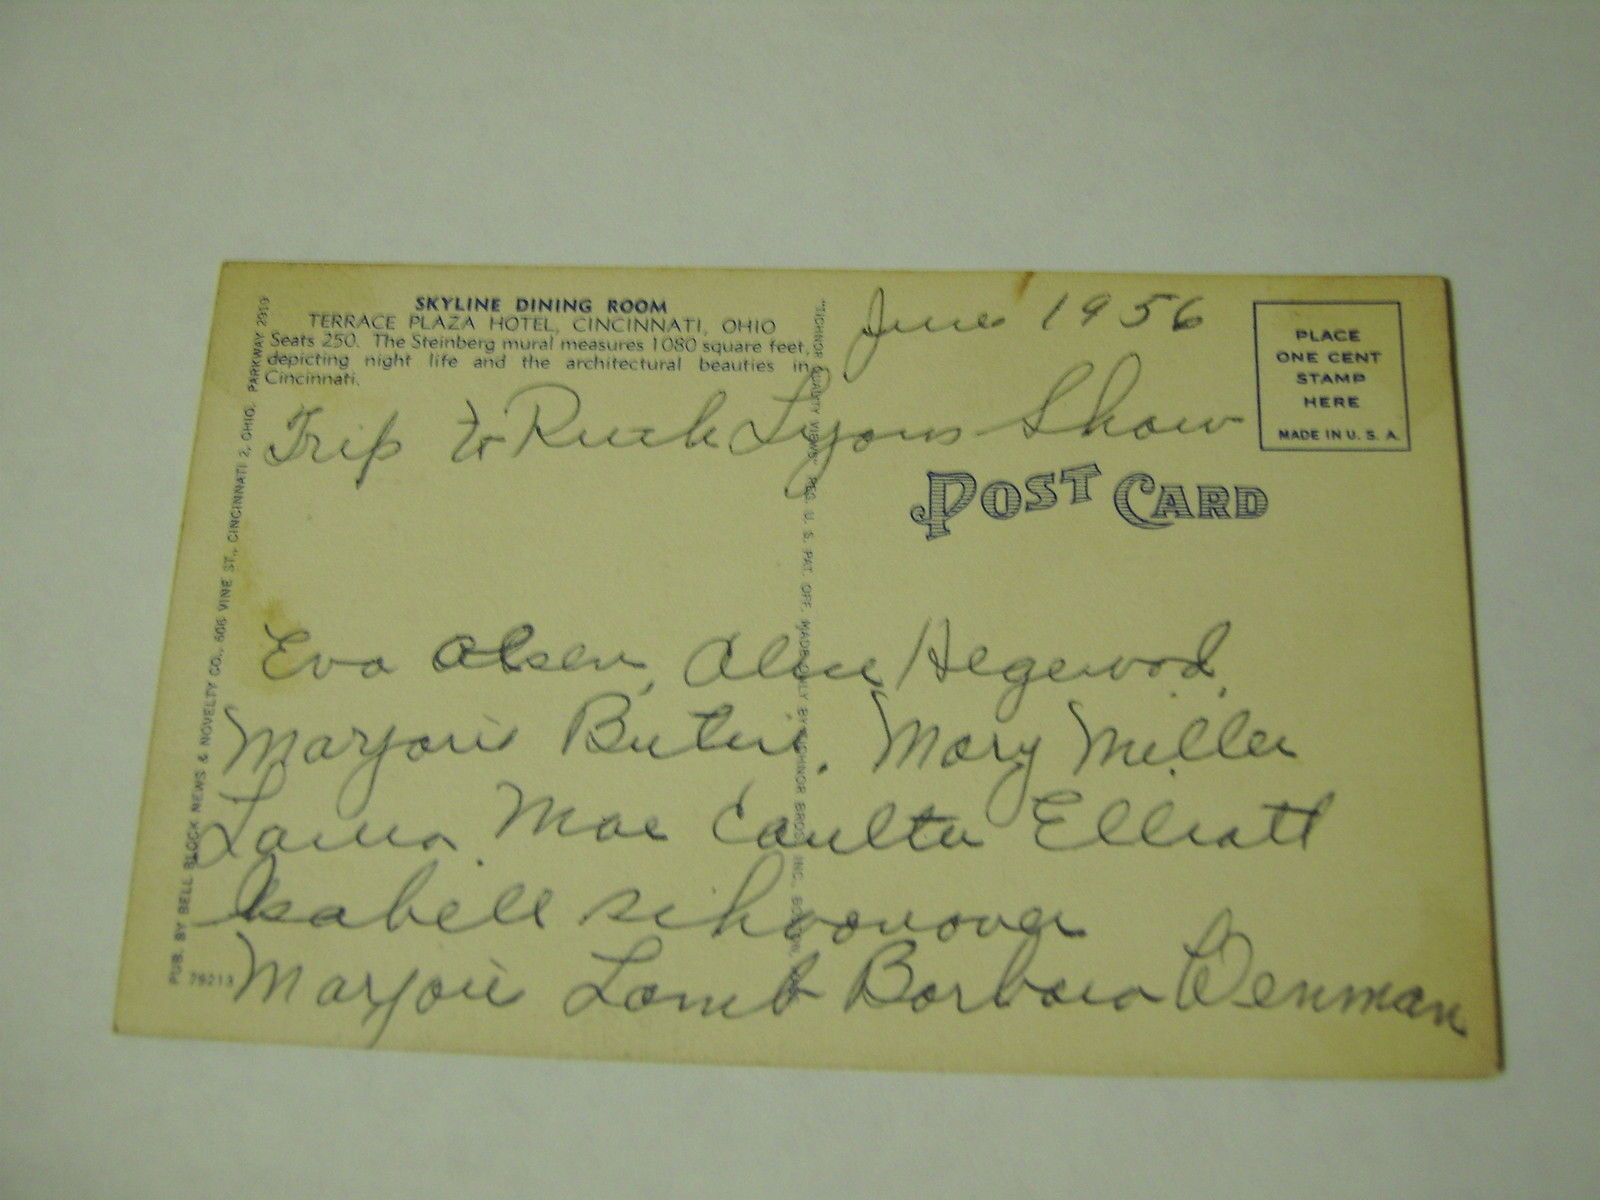 SKYLINE DINING ROOM
TERRACE PLAZA HOTEL, CINCINNATI, OHIO
Seats 250. The Steinberg mural measures 1080 square feet,
depicting night life and the architectural beauties in
Cincinnati.
June 1956
PLACE
ONE CENT
STAMP
HERE
MADE IN U. S. A.
Trip to Ruth Lyons Show
POST CARD
Eva Olsen, Alice Hegewood,
Marjorie Butler, Mary Miller
Laura Mae Coulter Elliott
Isabell Schoonover
Marjorie Lamb Barbara Denman
PUB. BY BELL BLOCK NEWS & NOVELTY CO., 606 VINE ST., CINCINNATI 2, OHIO. PARKWAY 2939
"TICHNOR QUALITY VIEWS" REG. U. S. PAT. OFF. MADE ONLY BY TICHNOR BROS., INC., BOSTON,
79213